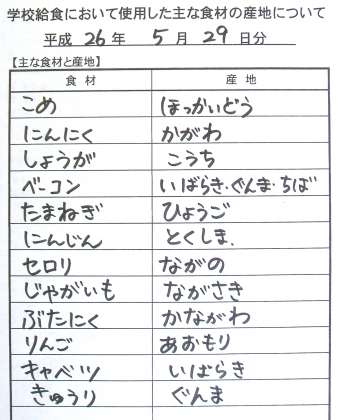 学校給食において使用した主な食材の産地について
平成 26 年 5 月 29 日分
【主な食材と産地】
食材 産地
こめ ほっかいどう
にんにく かがわ
しょうが こうち
ベーコン いばらき・ぐんま・ちば
たまねぎ ひょうご
にんじん とくしま.
セロリ ながの
じゃがいも ながさき
ぶたにく かながわ
りんご あおもり
キャベツ いばらき
きゅうり ぐんま